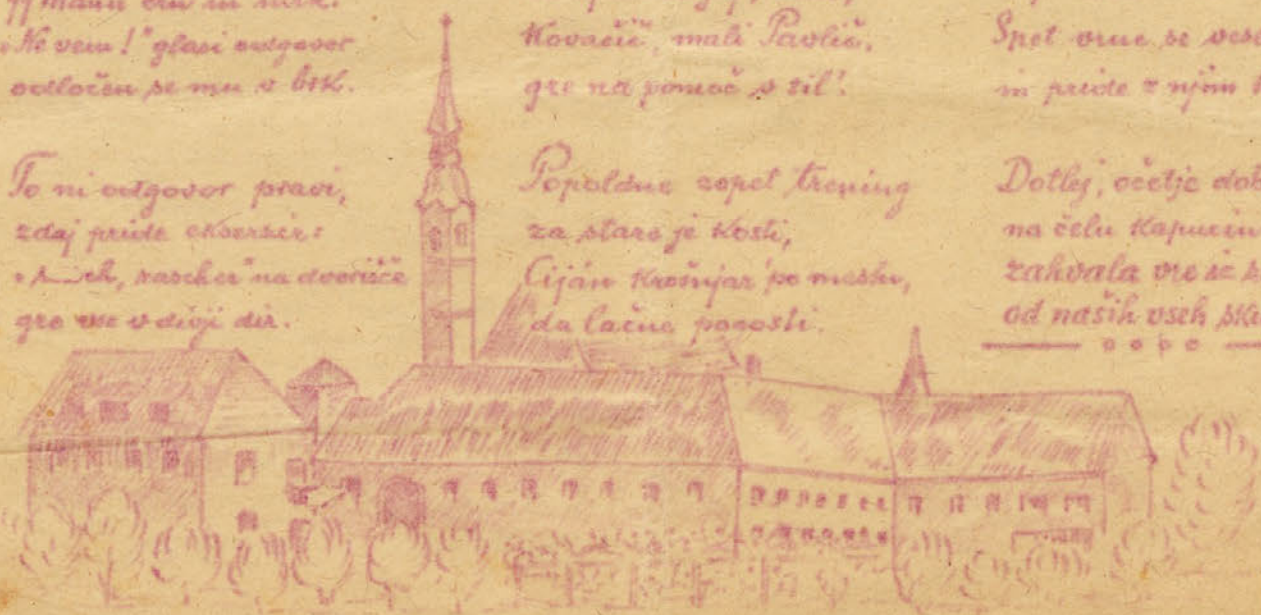 „Ne vem!" glasi odgovor
odločen se mu v brk.
To ni odgovor pravi,
zdaj pride ekserzir:
rascher" na dvorišče
gre vse v divji dir.
Kovačič, mali Pavlič,
gre na pomoč v sil!
Popoldne zopet trening
za stare je kosti,
Ciján Krošnjar po mestu,
da lačne pogosti.
Spet vrne se
in pride z njim
Dotlej, očetje
na čelu Kapucin
zahvala vre iz
od naših vseh